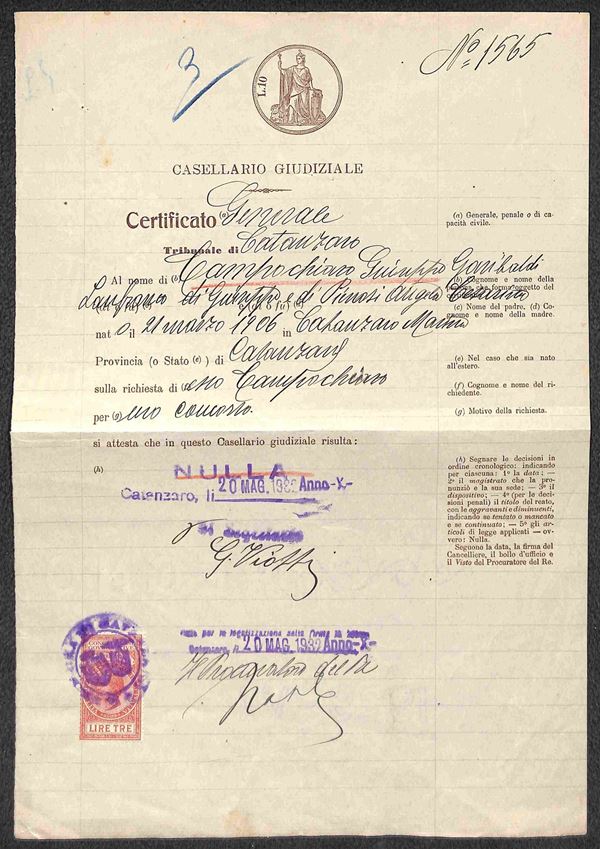 Nº 1565
3
L. 10
CASELLARIO GIUDIZIALE
Certificato (a) Generale
(a) Generale, penale o di capacità civile.
Tribunale di Catanzaro
Al nome di (b) Campochiaro Giuseppe Garibaldi
(b) Cognome e nome della
che forma oggetto del
di Giuseppe e di
(c) Nome del padre. (d) Cognome e nome della madre.
nat o il 21 marzo 1906 in Catanzaro Marina
Provincia (o Stato (e) ) di Catanzaro
(e) Nel caso che sia nato all'estero.
sulla richiesta di esso Campochiaro
(f) Cognome e nome del richiedente.
per (g) uso concorso.
(g) Motivo della richiesta.
si attesta che in questo Casellario giudiziale risulta:
(h) NULLA
Catanzaro, li 20 MAG. 1932 Anno -X-
G. Viotti
(h) Segnare le decisioni in
ordine cronologico: indicando
per ciascuna: 1º la data; —
2º il magistrato che la pronunziò
e la sua sede; — 3º il
dispositivo; — 4º (per le decisioni
penali) il titolo del reato,
con le aggravanti e diminuenti,
indicando se tentato o mancato
e se continuato; — 5º gli articoli
di legge applicati — ovvero:
Nulla.
Seguono la data, la firma del
Cancelliere, il bollo d'ufficio e
il Visto del Procuratore del Re.
Visto per la legalizzazione della firma
Catanzaro, li 20 MAG. 1932 Anno -X-
Il Procuratore del Re
LIRE TRE